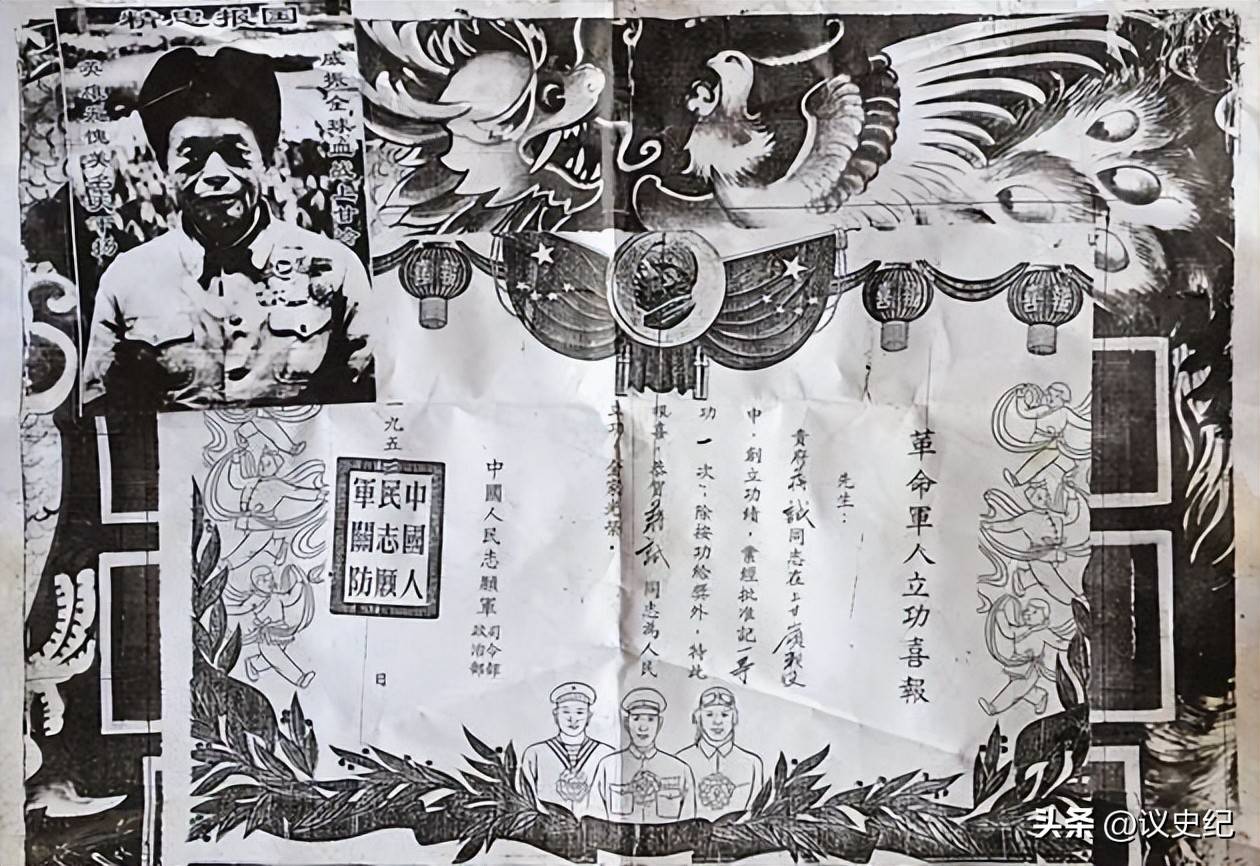 精忠报国
威振全球血战上甘岭
革命軍人立功喜報
先生：
貴府存誠同志在上甘嶺戰役
中，創立功績，業經批准記一等
功一次；除按功給獎外，特此
報喜，恭賀蔣誠同志為人民
立功，全家光榮。
中國人民志願軍
司令部
政治部
一九五三
日
中國人
民志願
軍關防
头条 @议史纪